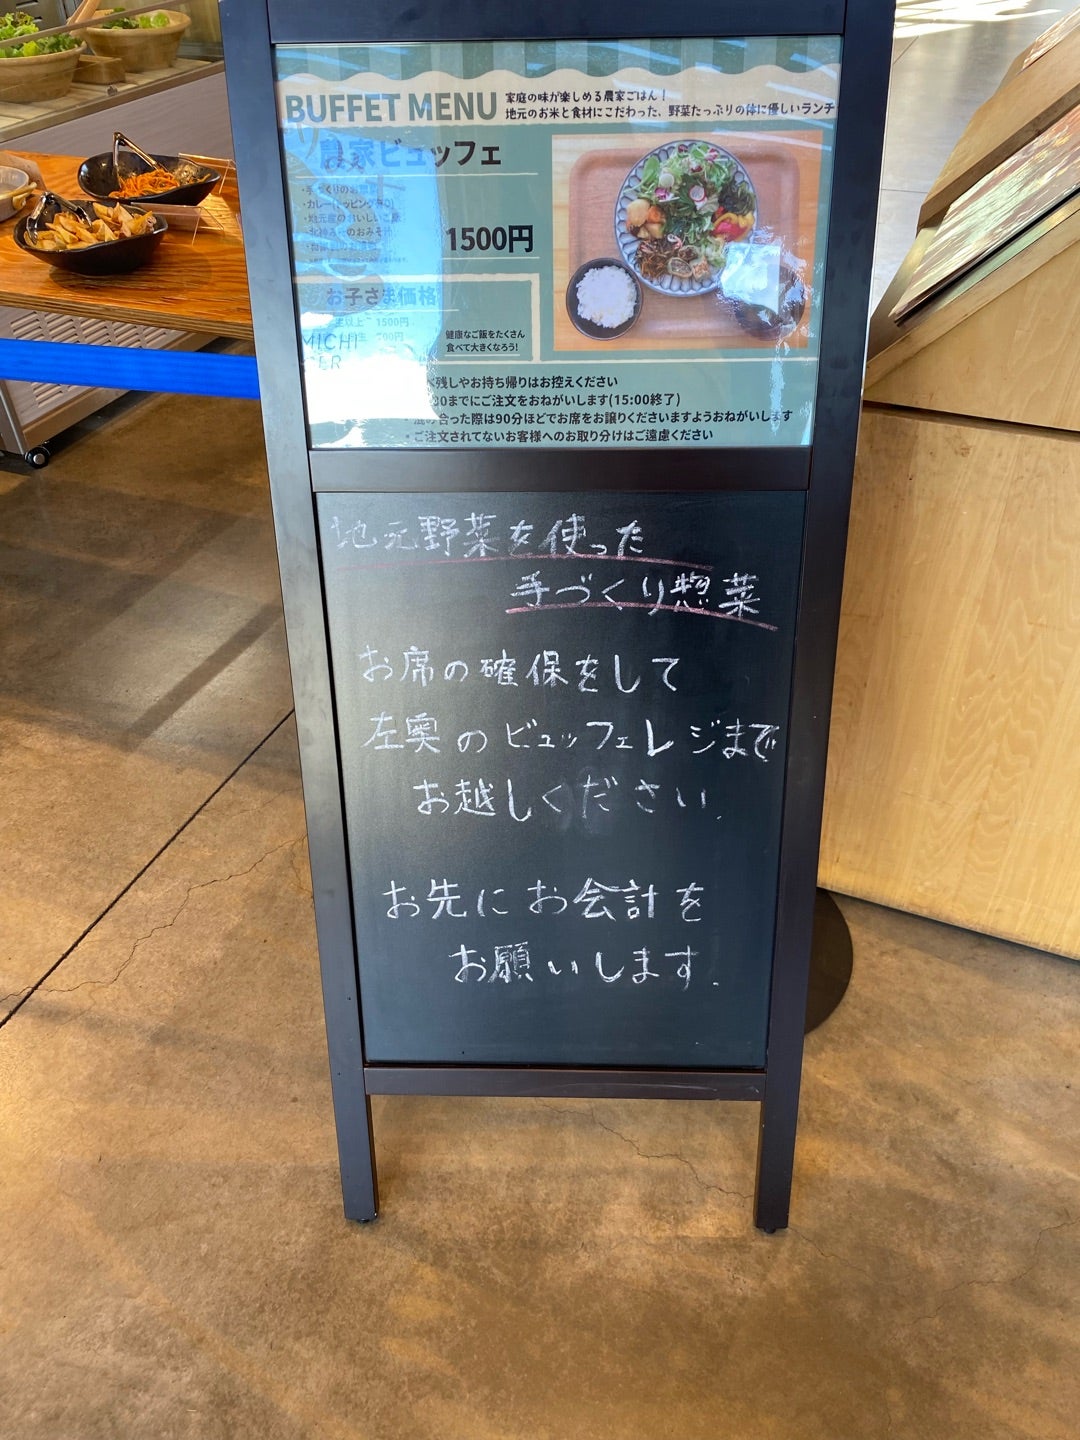 BUFFET MENU
家庭の味が楽しめる農家ごはん！
地元のお米と食材にこだわった、野菜たっぷりの体に優しいランチ
農家ビュッフェ
・手づくりのお惣
・カレー(トッピング
・地元産のおいしいご飯
のおみそ汁
1500円
お子さま価格
生以上 1500円
00円
MICHI
健康なご飯をたくさん
食べて大きくなろう！
残しやお持ち帰りはお控えください
00までにご注文をおねがいします(15:00終了)
合った際は90分ほどでお席をお譲りくださいますようおねがいします
・ご注文されてないお客様へのお取り分けはご遠慮ください
地元野菜を使った
手づくり惣菜
お席の確保をして
左奥のビュッフェレジまで
お越しください.
お先にお会計を
お願いします.